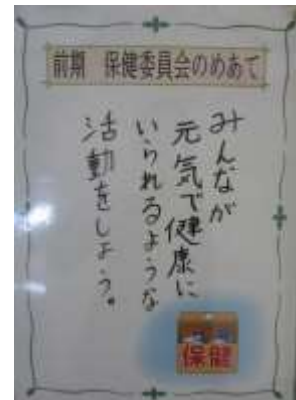 前期 保健委員会のめあて
みんなが
元気で健康に
いられるような
活動をしよう。
保健